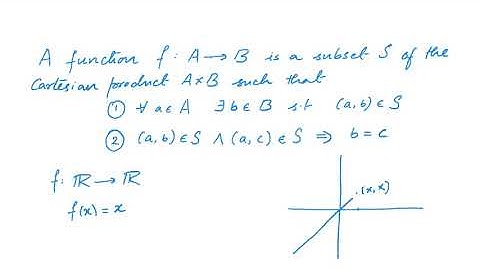 A function f : A → B is a subset S of the
Cartesian product A×B such that
① ∀ a ∈ A ∃ b ∈ B s.t (a, b) ∈ S
② (a, b) ∈ S ∧ (a, c) ∈ S ⇒ b = c
f : ℝ → ℝ
f(x) = x
(x, x)